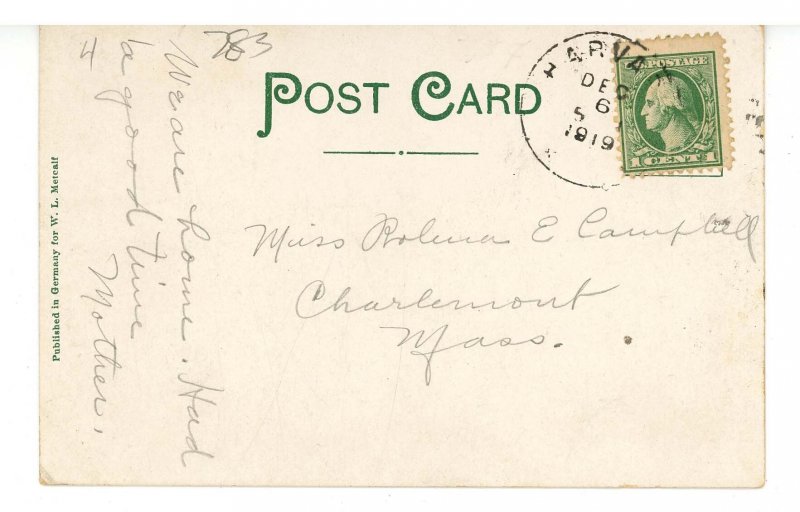 783
4
We are home. Had
a good time
Mother.
POST CARD
HARVARD
DEC
6
5
1919
U.S. POSTAGE
1 CENT 1
Miss Rolena E Campbell
Charlemont
Mass.
Published in Germany for W. L. Metcalf